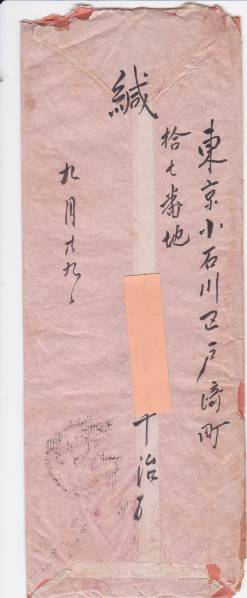 東京小石川区戸崎町
拾七番地
十治方
緘
九月廿九日